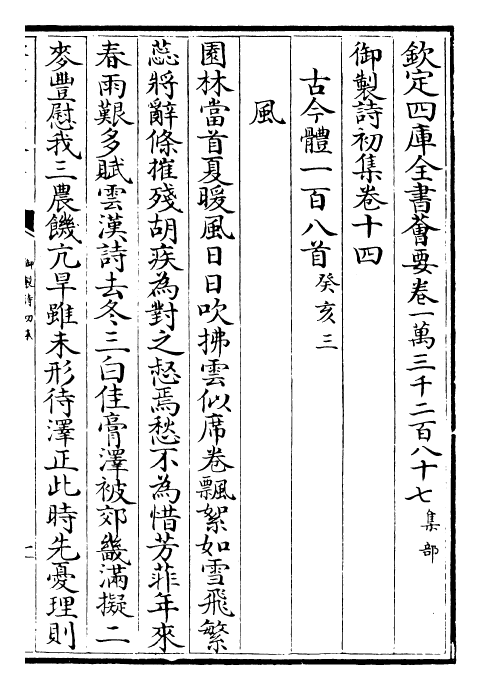 欽定四庫全書薈要卷一萬三千二百八十七集部
御製詩初集卷十四
古今體一百八首癸亥三
風
園林當首夏暖風日日吹拂雲似席卷飄絮如雪飛繁
蕊將辭條摧殘胡疾為對之愁焉愁不為惜芳菲年來
春雨艱多賦雲漢詩去冬三白佳膏澤被郊畿滿擬二
麥豐慰我三農饑亢旱雖未形待澤正此時先憂理則
御製詩初集